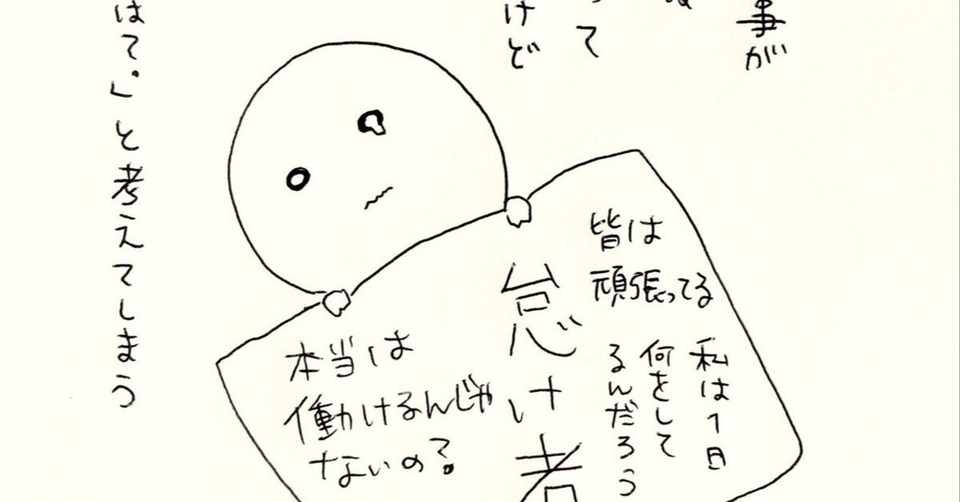 事が
って
けど
皆は
頑張ってる
私は1日
何をして
るんだろう
怠け者
本当は
働けるんじゃ
ないの?
はて。」と考えてしまう